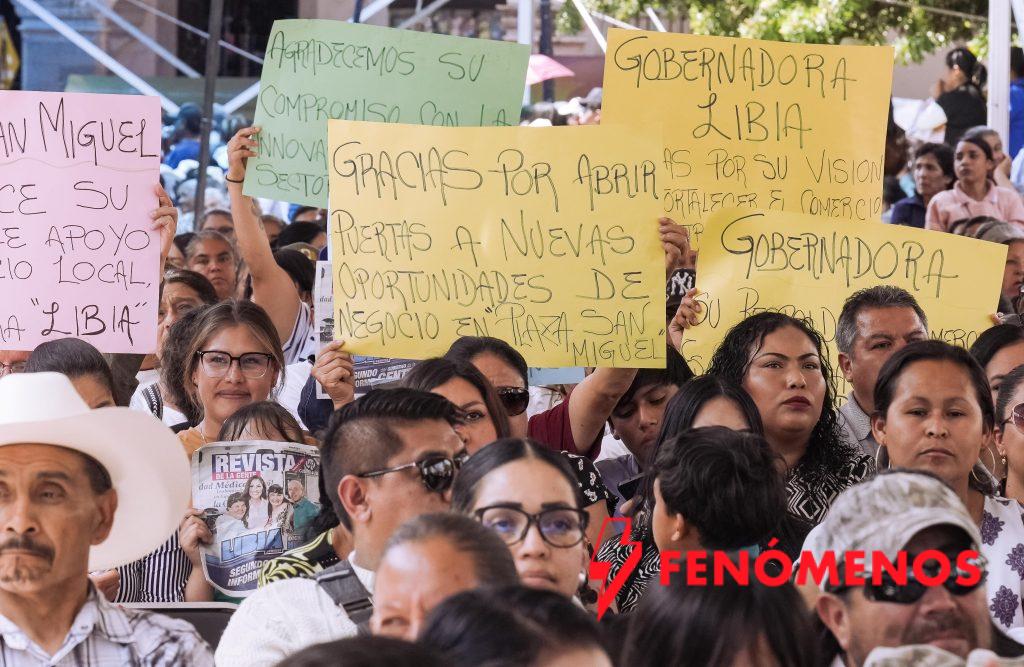 AN MIGUEL
CE SU
E APOYO
IO LOCAL,
A "LIBIA"
AGRADECEMOS SU
COMPROMISO CON LA
INNOVA
SECTOR
GRACIAS POR ABRIR
PUERTAS A NUEVAS
OPORTUNIDADES DE
NEGOCIO EN "PLAZA SAN
MIGUEL
GOBERNADORA
LIBIA
AS POR SU VISION
FORTALECER EL COMERCIO
GOBERNADORA
REVISTA
DE LA GENTE
LIBIA
SEGUNDO
INFORME
FENÓMENOS